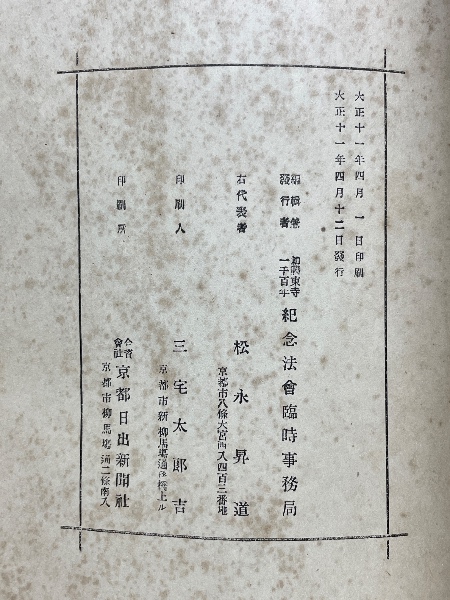 大正十一年四月 一 日印刷
大正十一年四月十二日發行
編輯兼
發行者
東寺
一千百年
紀念法會臨時事務局
右代表者
松永昇道
京都市八條大宮西入四百三番地
印刷人
三宅太郎吉
京都市新柳馬場通
上ル
印刷所
合資
會社
京都日出新聞社
京都市柳馬場通二條南入